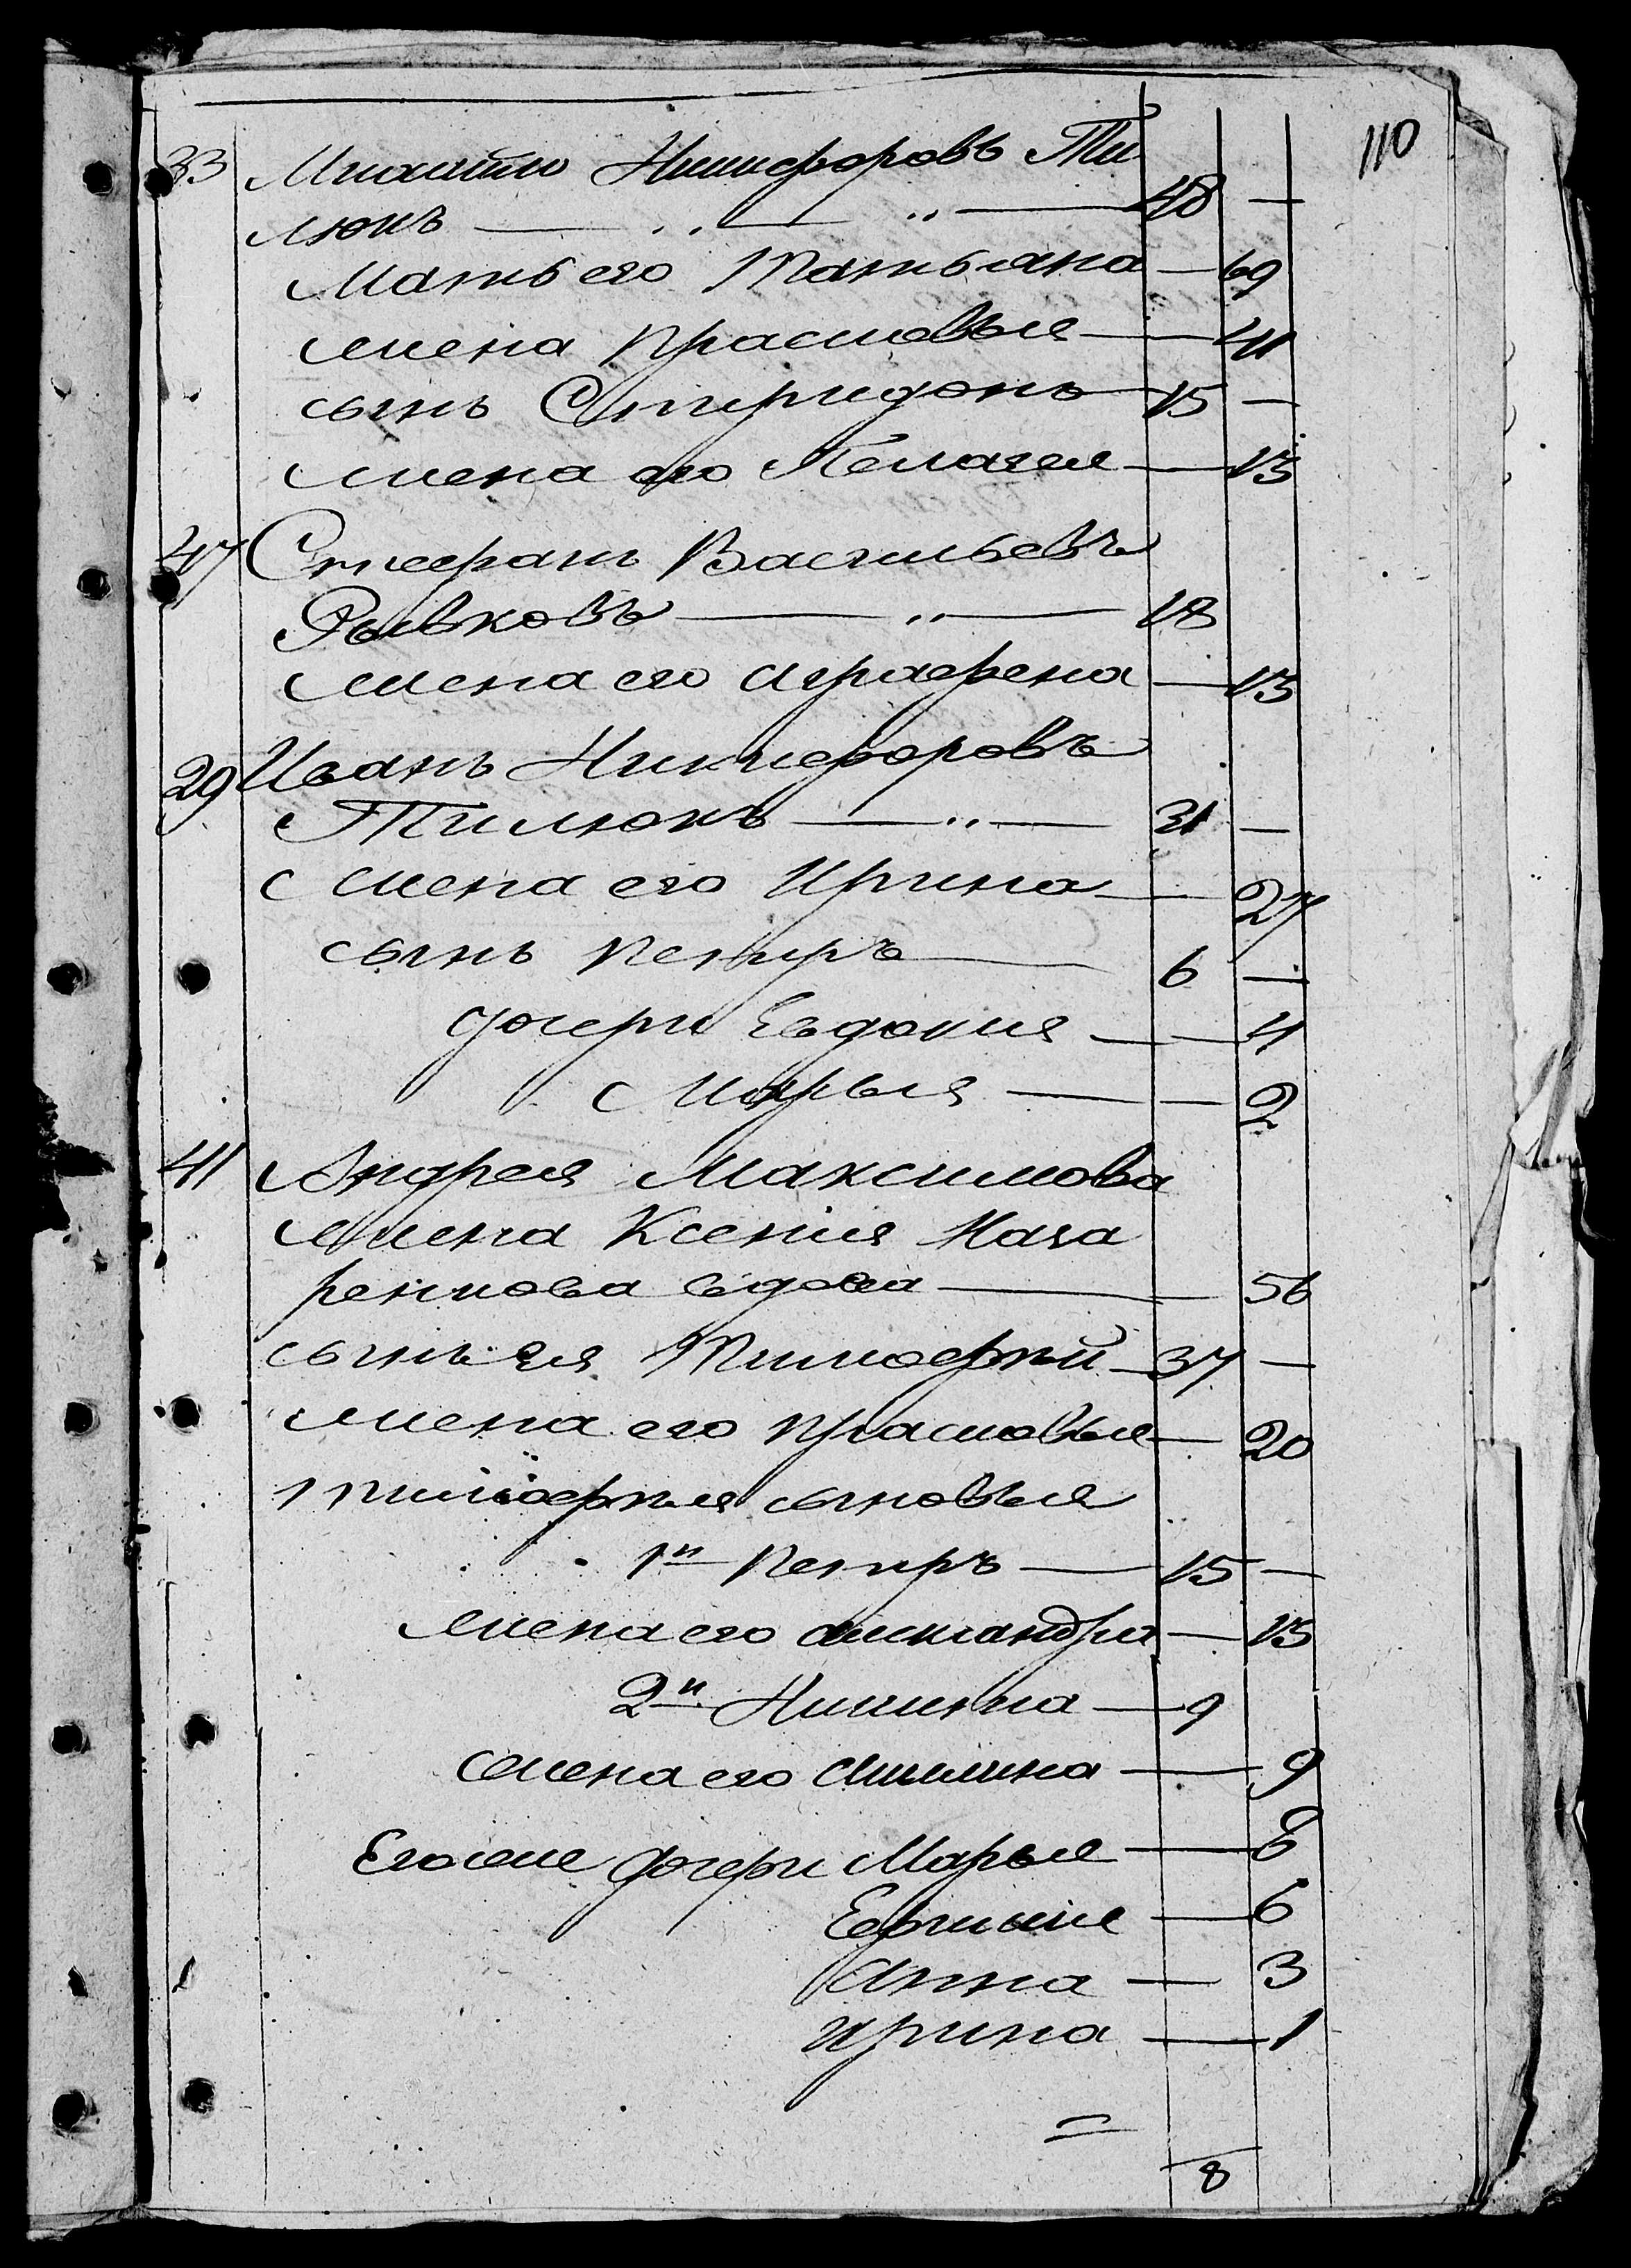 110
33 Михайло Никифоровъ Ти
люкъ — „ — „ — 48 —
Мать его Татьяна — 69
жена Прасковья — 41
сынъ Спиридонъ 15 —
жена его Пелагея — 13
47 Стефанъ Васильевъ
Рывковъ — „ — 18
жена его Аграфена — 13
29 Иванъ Никифоровъ
Тилюкъ — „ — 31 —
жена его Ирина — 27
сынъ Петръ — 6 —
дочери Евдокия — 4
Марья — 2
41 Андрея Максимова
жена Ксения Наза
ренкова вдова — 56
сынъ ея Тимофей 37 —
жена его Прасковья — 20
Тимофея сыновья
1й Петръ — 15 —
жена его Александра — 15
2й Никита — 9
жена его Акилина — 9
Его же дочери Марья — 8
6
Анна — 3
Ирина — 1
8